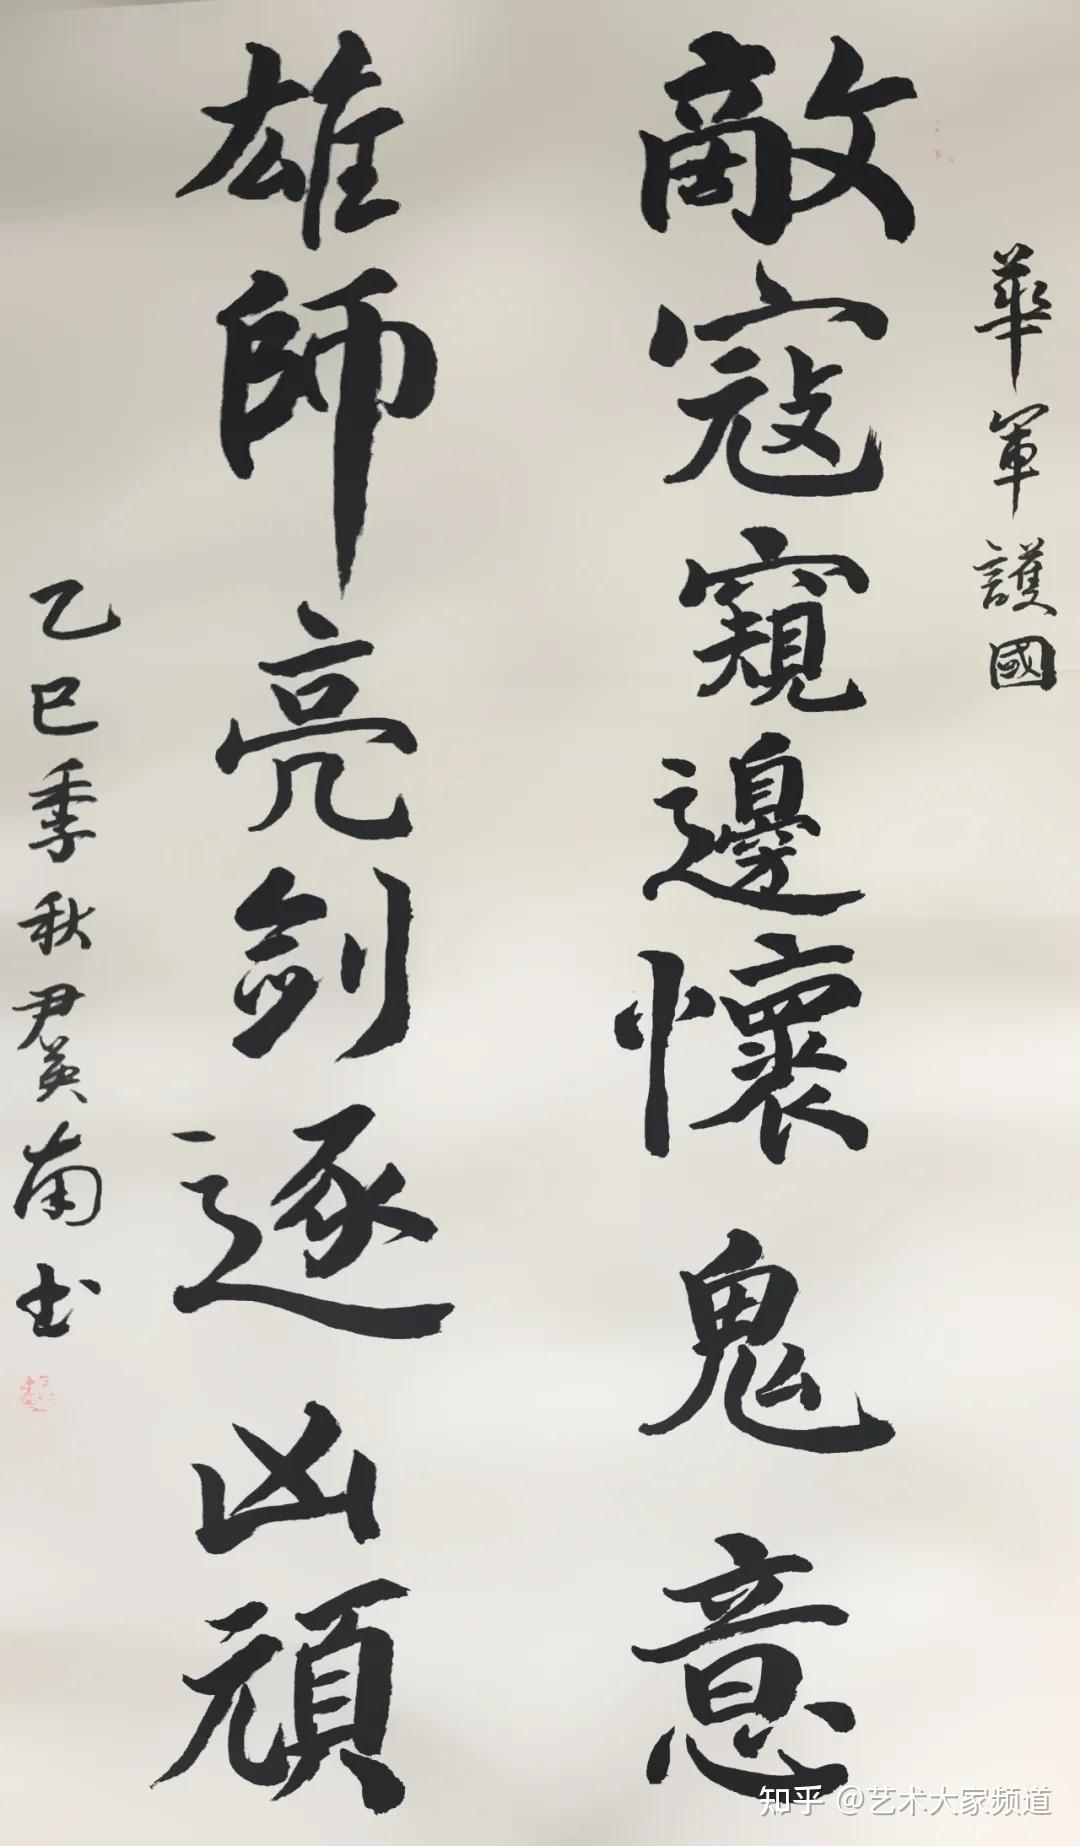 華軍護國
敵寇窺邊懷鬼意
雄師亮劍逐凶頑
乙巳季秋尹英南书
知乎 @艺术大家频道